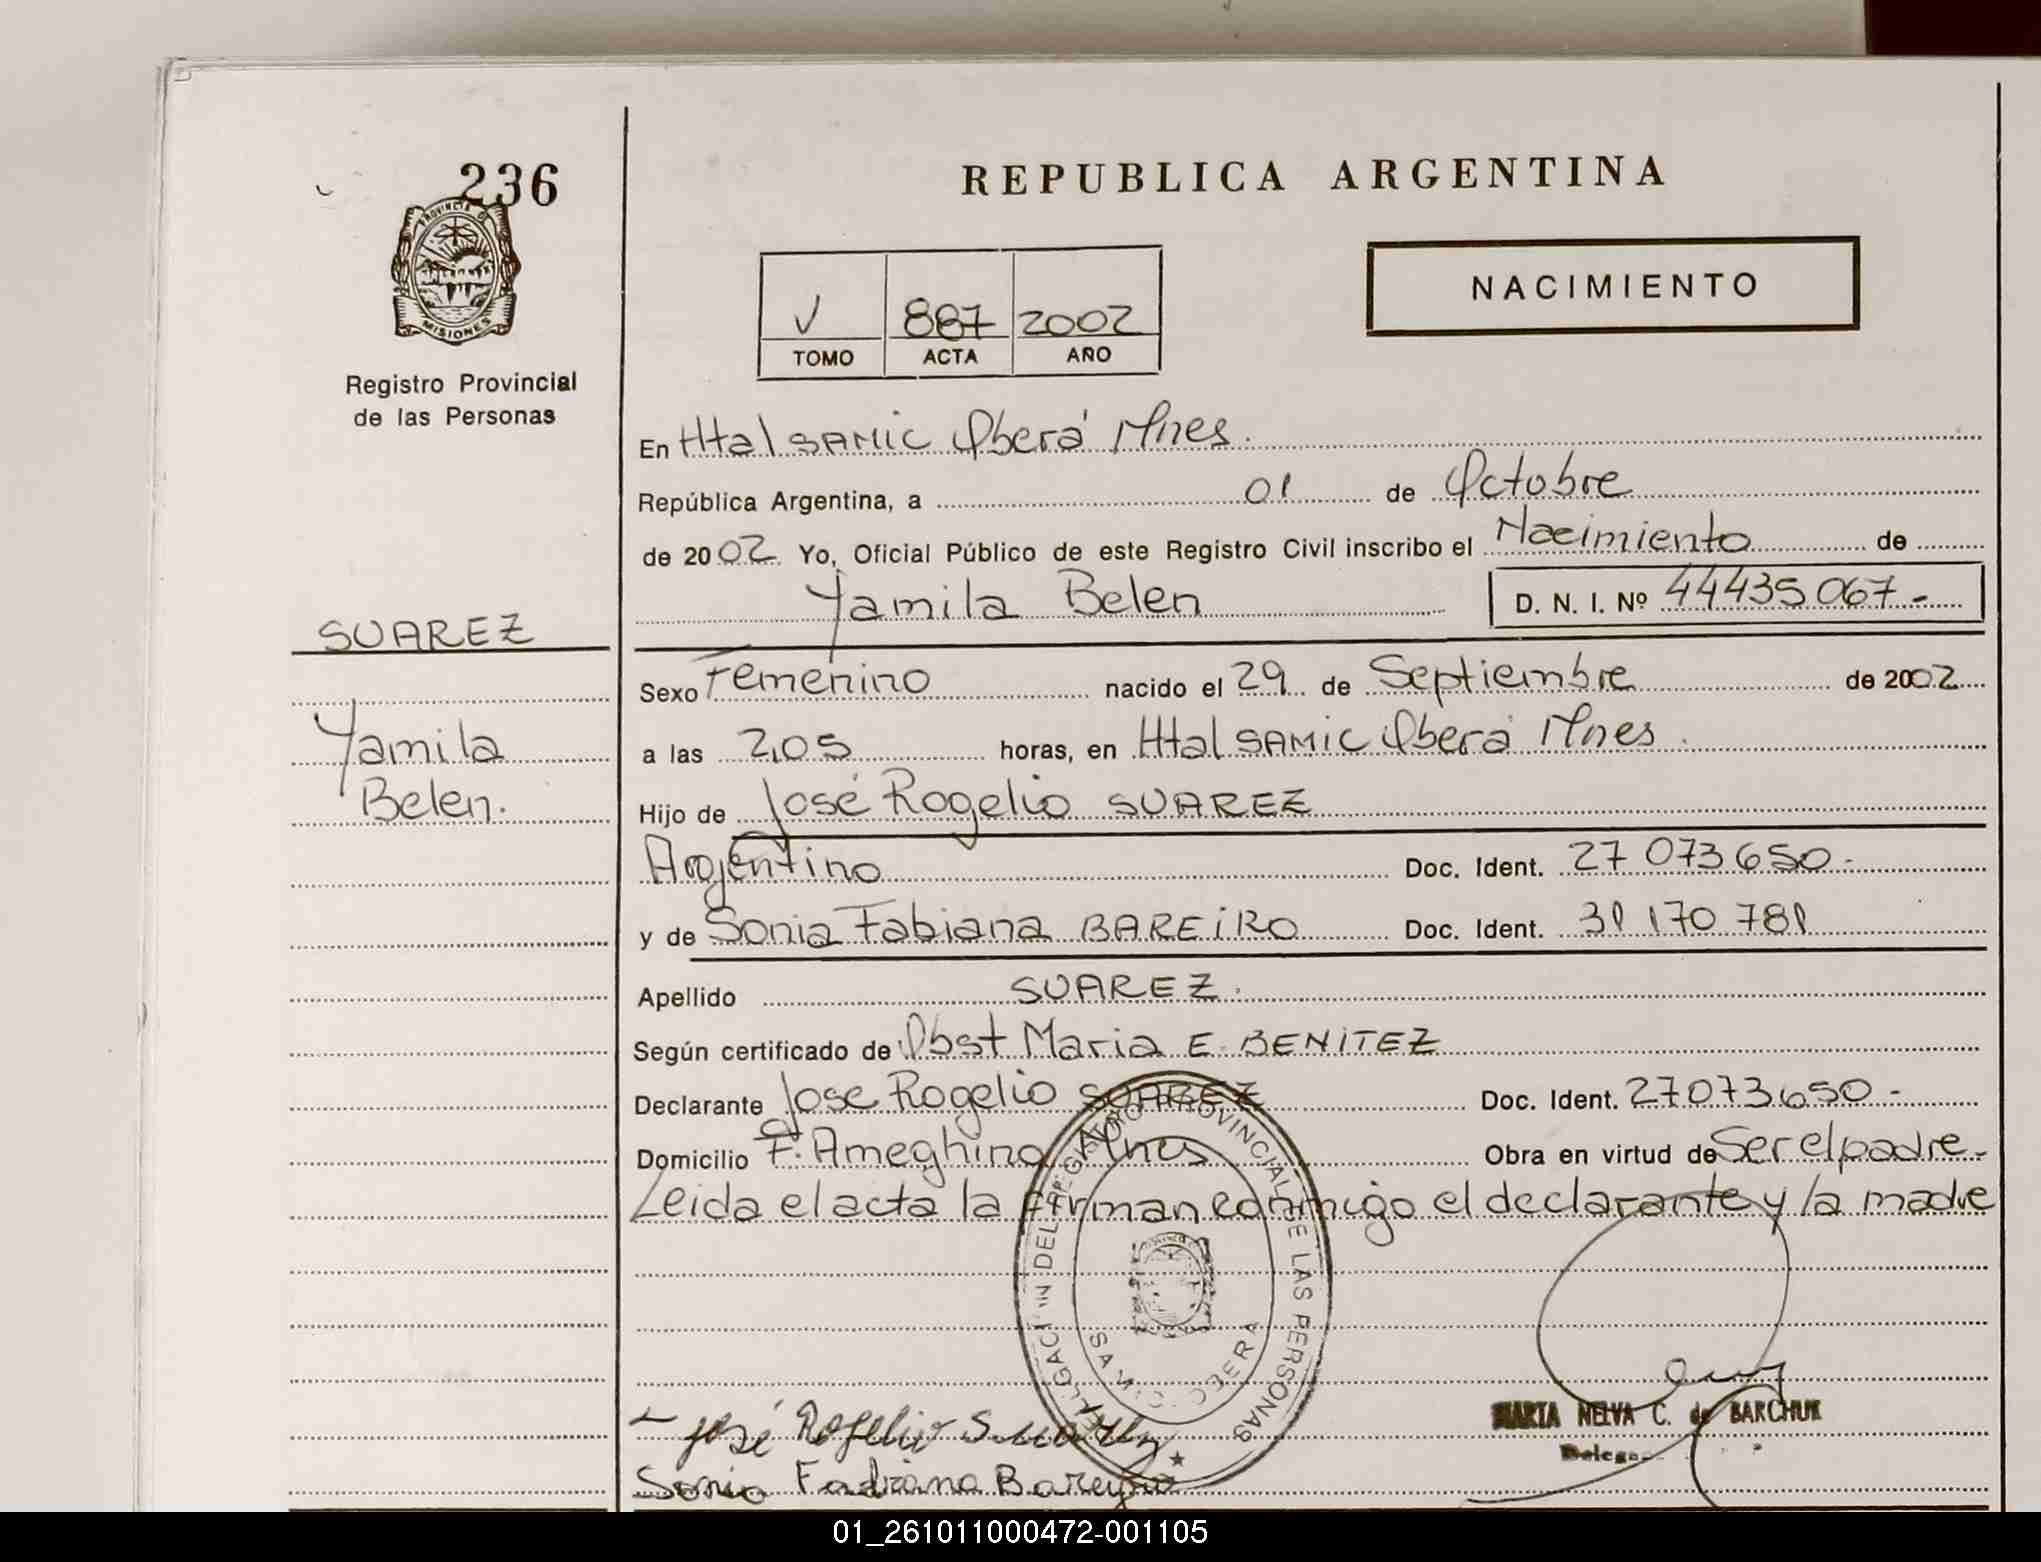 236
PROVINCIA D
MISIONES
Registro Provincial
de las Personas
SUAREZ
Yamila
Belen.
REPUBLICA ARGENTINA
NACIMIENTO
V 887 2002
TOMO ACTA AÑO
En Htal SAMIC Oberá Mnes.
República Argentina, a 01 de Octubre
de 2002 Yo, Oficial Público de este Registro Civil inscribo el Nacimiento de
Yamila Belen D. N. I. Nº 44435067-
Sexo Femenino nacido el 29 de Septiembre de 2002
a las 2,05 horas, en Htal SAMIC Oberá Mnes.
Hijo de José Rogelio SUAREZ
Argentino Doc. Ident. 27 073650-
y de Sonia Fabiana BAREiRO Doc. Ident. 31 170 781
Apellido SUAREZ.
Según certificado de Obst Maria E. BENITEZ
Declarante Jose Rogelio SUAREZ Doc. Ident. 27073650-
Domicilio F. Ameghino Mnes Obra en virtud de Ser el padre-
Leida el acta la firman conmigo el declarante y la madre
DEL REGISTRO PROVINCIAL DE LAS PERSONAS
SAMIC OBERA
MARTA NELVA C. de BARCHUK
José Rogelio Suarez
Sonia Fabiana Bareyro
01_261011000472-001105